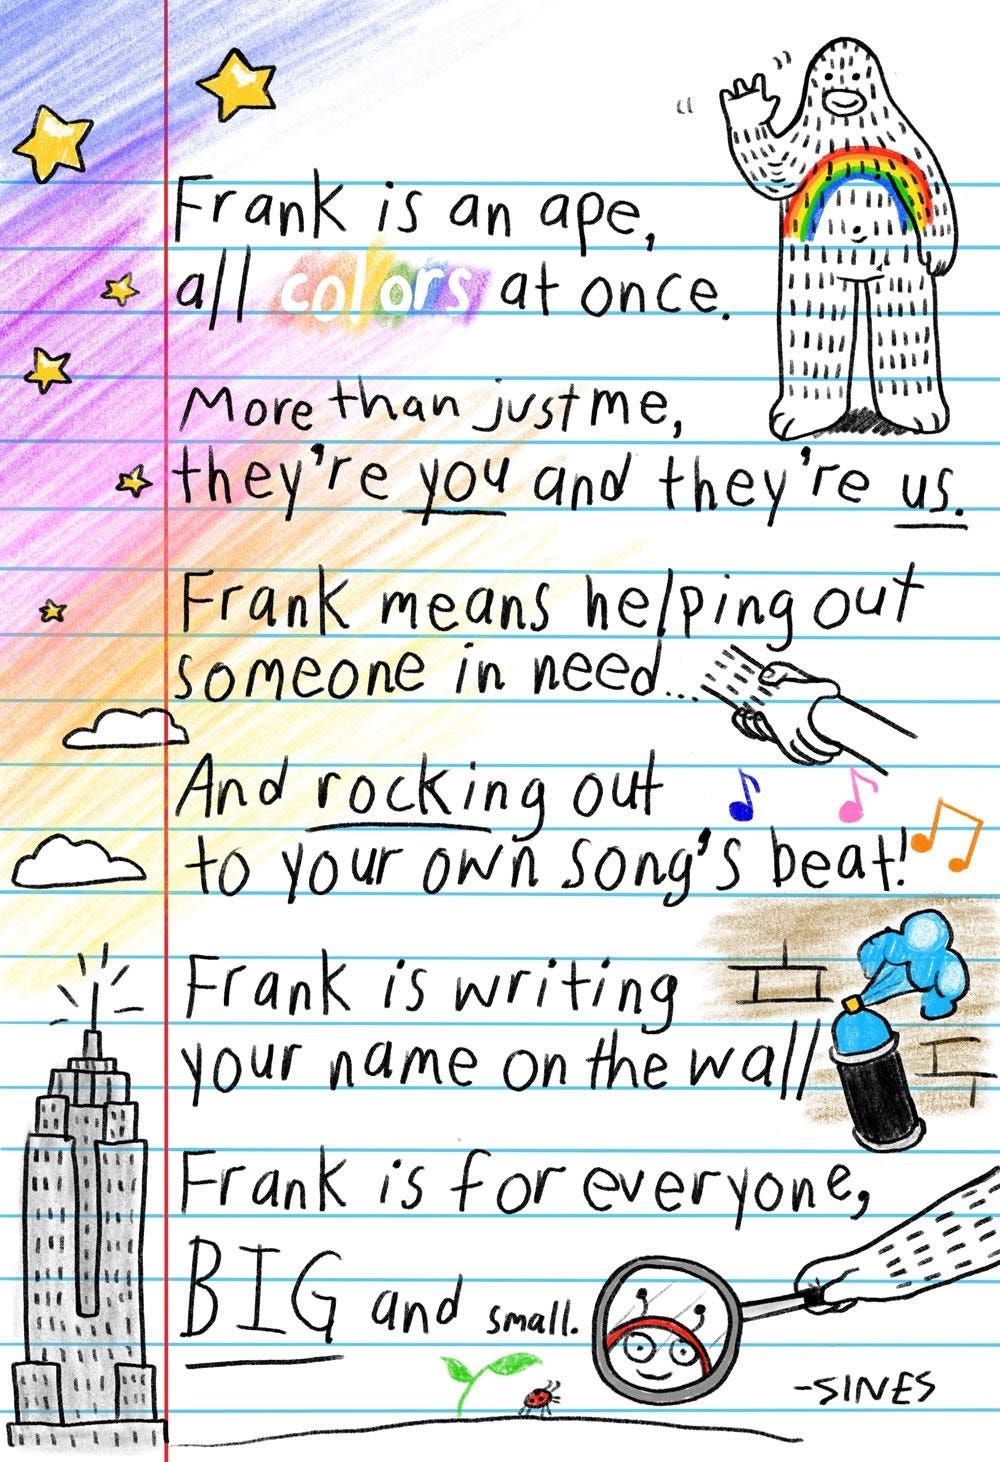 Frank is an ape,
all colors at once.
More than just me,
they're you and they're us.
Frank means helping out
someone in need...
And rocking out
to your own song's beat!
Frank is writing
your name on the wall
Frank is for everyone,
BIG and small.
-SINES